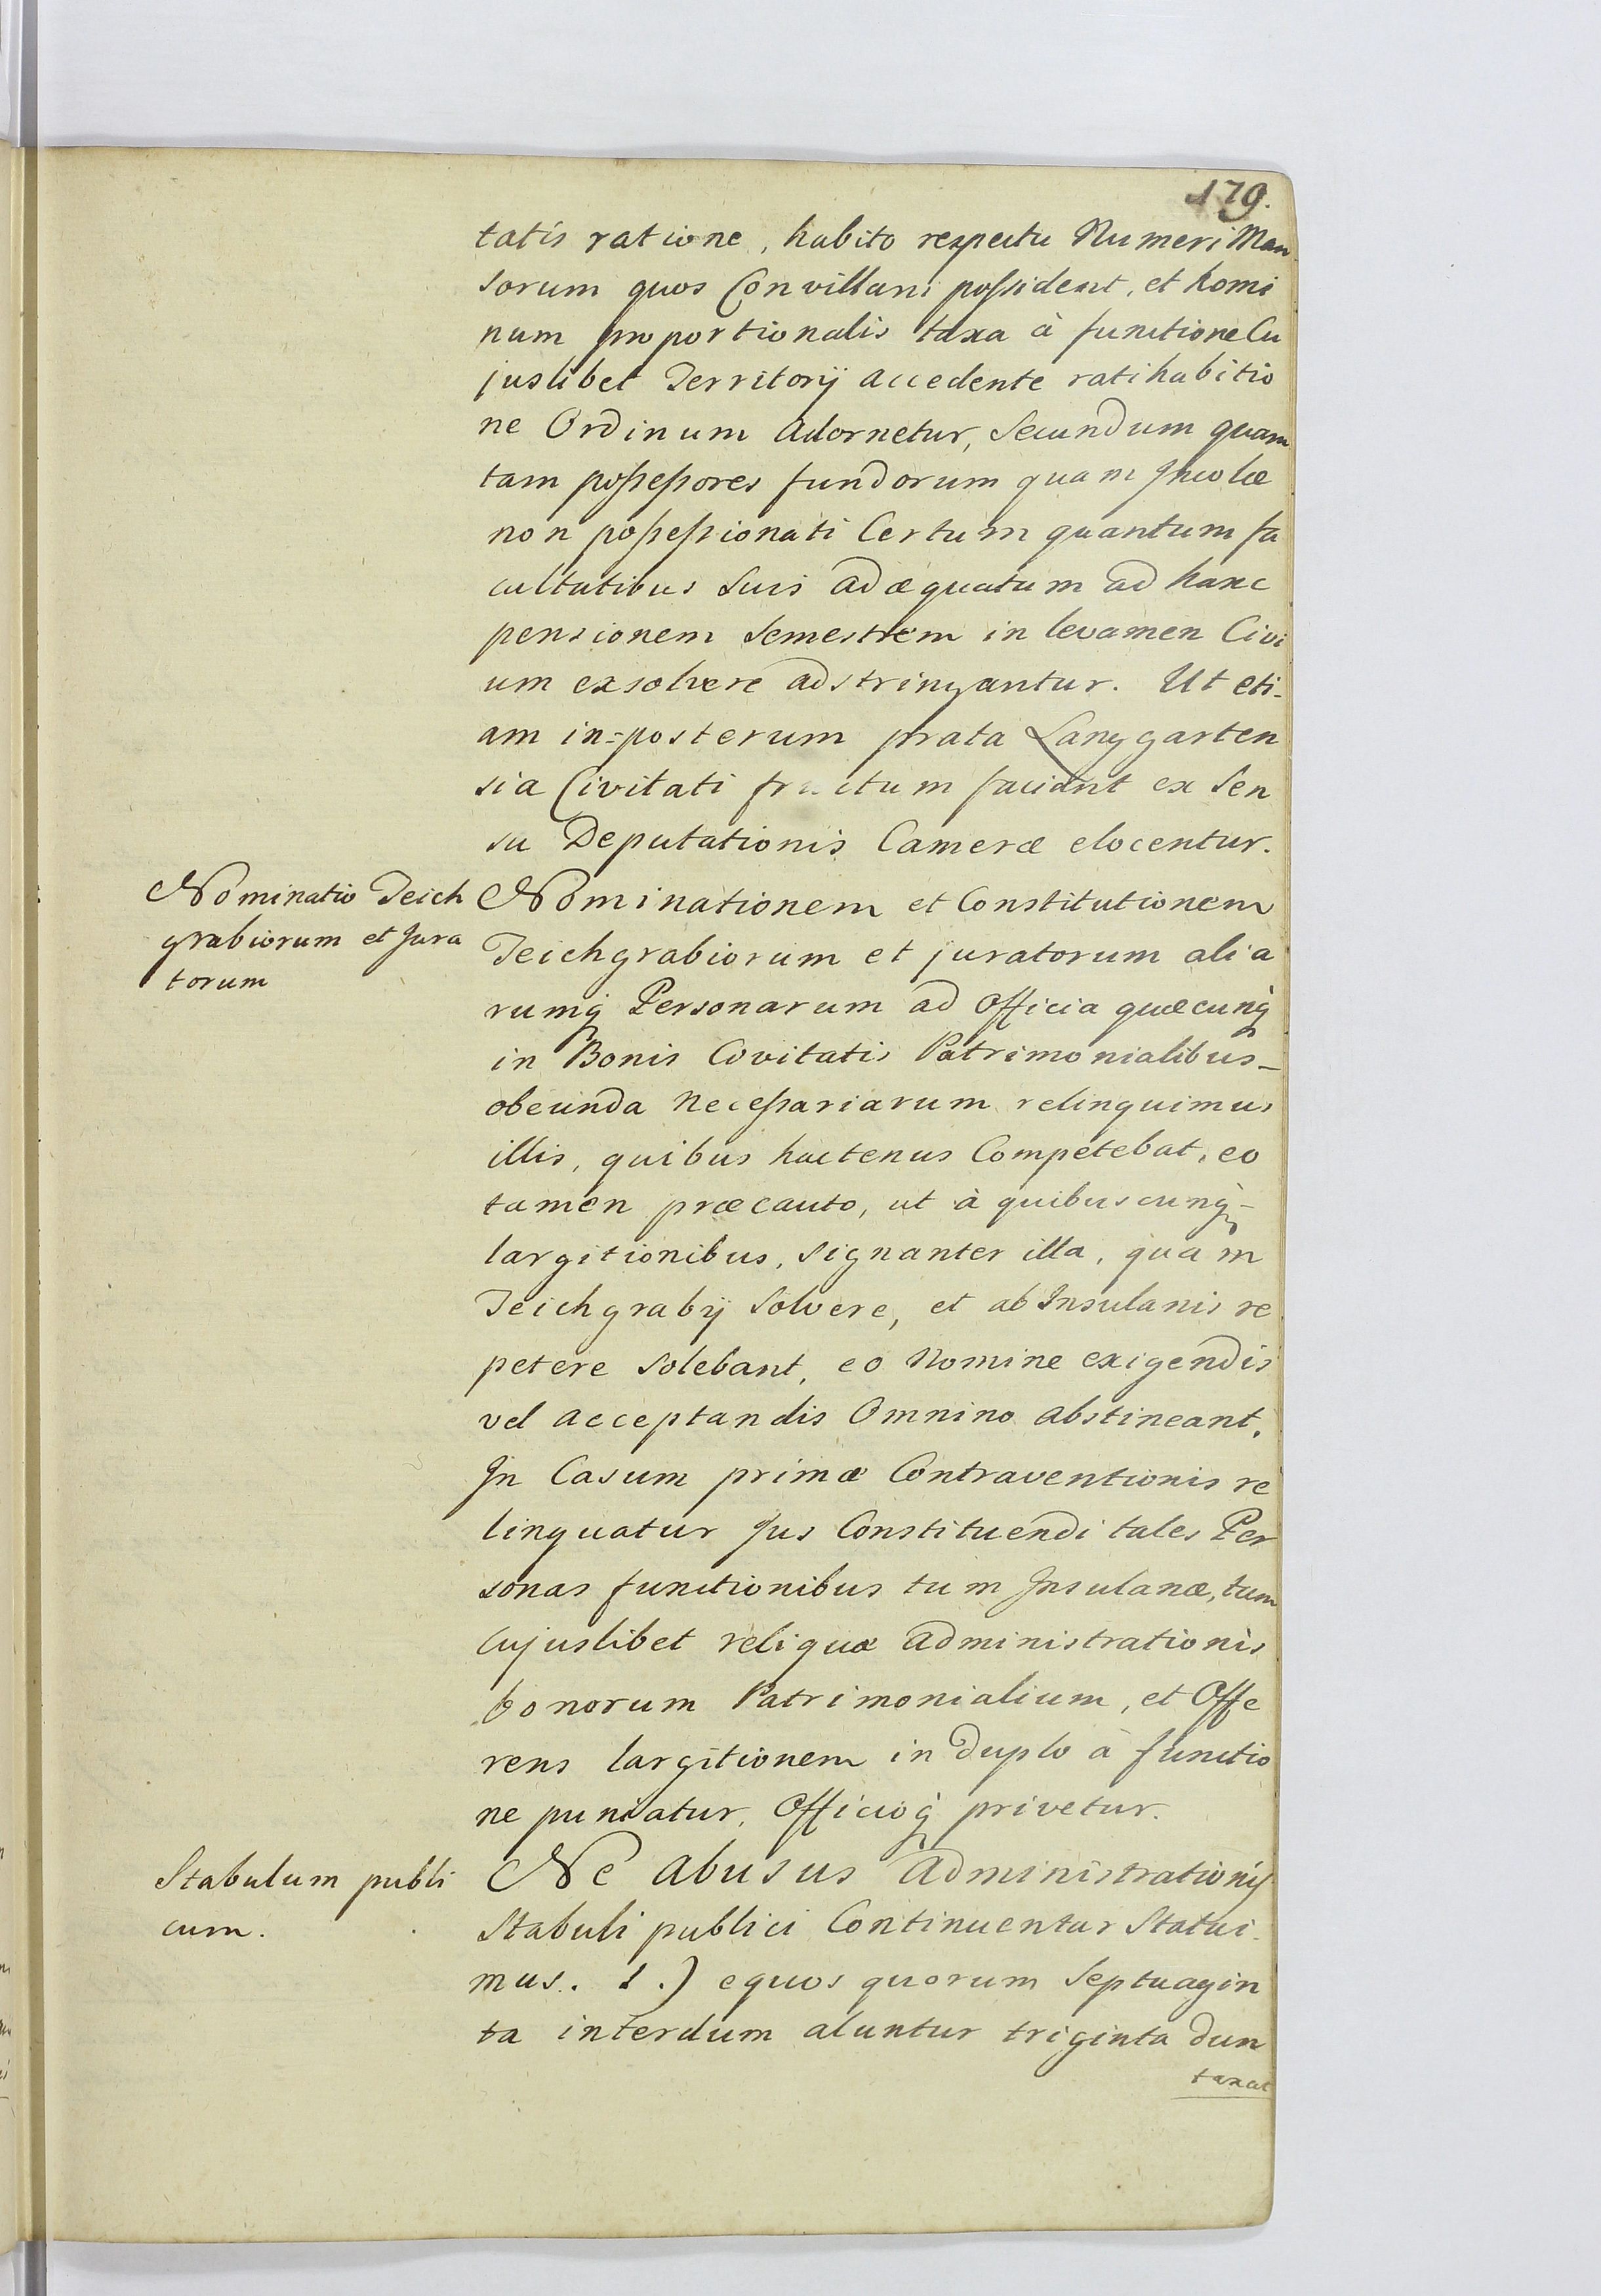 179.
tatis ratione, habito respectu Numeri Man
sorum quos Convillani possident, et homi
num proportionalis taxa à functione Cu
juslibet Territorij accedente ratihabitio
ne Ordinum adornetur, Secundum quam
tam possessores fundorum quam Incolæ
non possessionati Certum quantum fa
cultatibus suis adæquatum ad hanc
pensionem semestrem in levamen Civi
um exsolvere adstringantur. Ut eti-
am in=posterum prata Langgarten
sia Civitati fructum faciant ex Sen
su Deputationis Cameræ elocentur.
Nominatio Teich
grabiorum et Jura
torum
Nominationem et Constitutionem
Teichgrabiorum et juratorum alia
rumq Personarum ad officia quæcunq
in Bonis Covitatis Patrimonialibus-
obeunda Necessariarum relinquimus
illis, quibus hactenus Competebat, eo
tamen præcauto, ut à quibuscunq-
largitionibus, signanter illa, quam
Teichgrabij Solvere, et ab Insulanis re
petere solebant, eo Nomine exigendis
vel acceptandis Omnino abstineant.
In Casum primæ Contraventionis re
linquatur Jus Constituendi tales Per
sonas functionibus tum Insulanæ, tum
Cujuslibet reliquæ administrationis
bonorum Patrimonialium, et Offe
rens largitionem in duplo à functio
ne puniatur, Officioq privetur.
Stabulum publi
cum.
Ne abusus administrationis
Stabuli publici Continuentur Statui-
mus. 1.) equos quorum Septuagin
ta interdum aluntur triginta dun
taxat